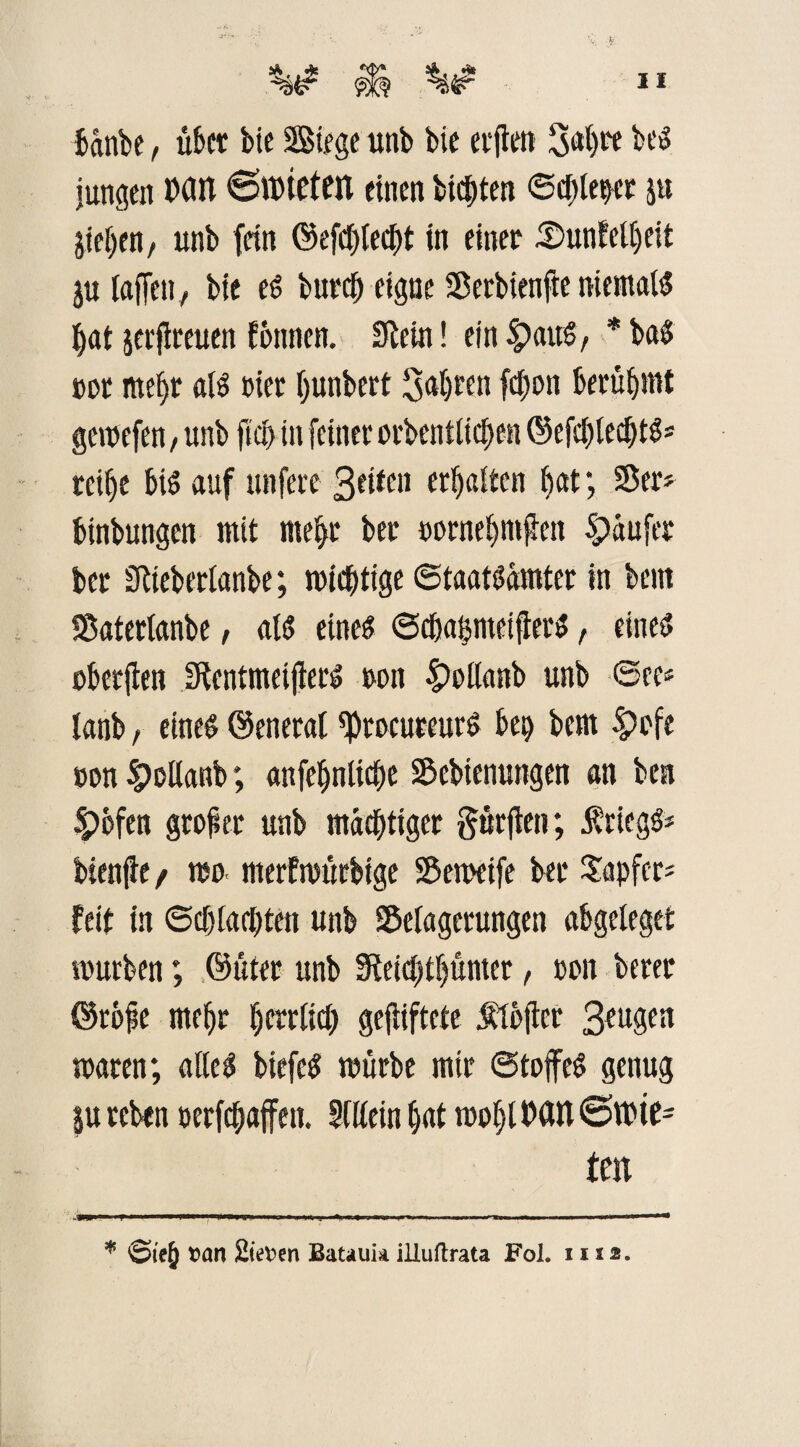 11
bånde, über die Wiege und die ersten Jahre des
jungen van Swieten einen dichten Schleyer zu
ziehen, und sein Geschlecht in einer Dunkelheit
zu lassen, die es durch eigne Verdienste niemals
hat zerstreuen können. Nein! ein Haus, * das
vor mehr als vier hundert Jahren schon berühmt
gewesen, und sich in seiner ordentlichen Geschlechts-
reihe bis auf unsere Zeiten erhalten hat; Ver-
bindungen mit mehr der vornehmsten Häuser
der Niederlande; wichtige Staatsämter in dem
Vaterlande, als eines Schatzmeisters, eines
obersten Rentmeisters von Holland und See-
land, eines General Procureurs bey dem Hofe
von Holland; ansehnliche Bedienungen an den
Höfen großer und mächtiger Fürsten; Kriegs-
dienste, wo merkwürdige Beweise der Tapfer-
keit in Schlachten und Belagerungen abgeleget
wurden; Güter und Reichthümer, von derer
Größe mehr herrlich gestiftete Klöster Zeugen
waren; alles dieses würde mir Stoffes genug
zu reden verschaffen. Allein hat wohl van Swie-
ten
* Sieh van Lieven Batauia illustrata Fol. 1112.